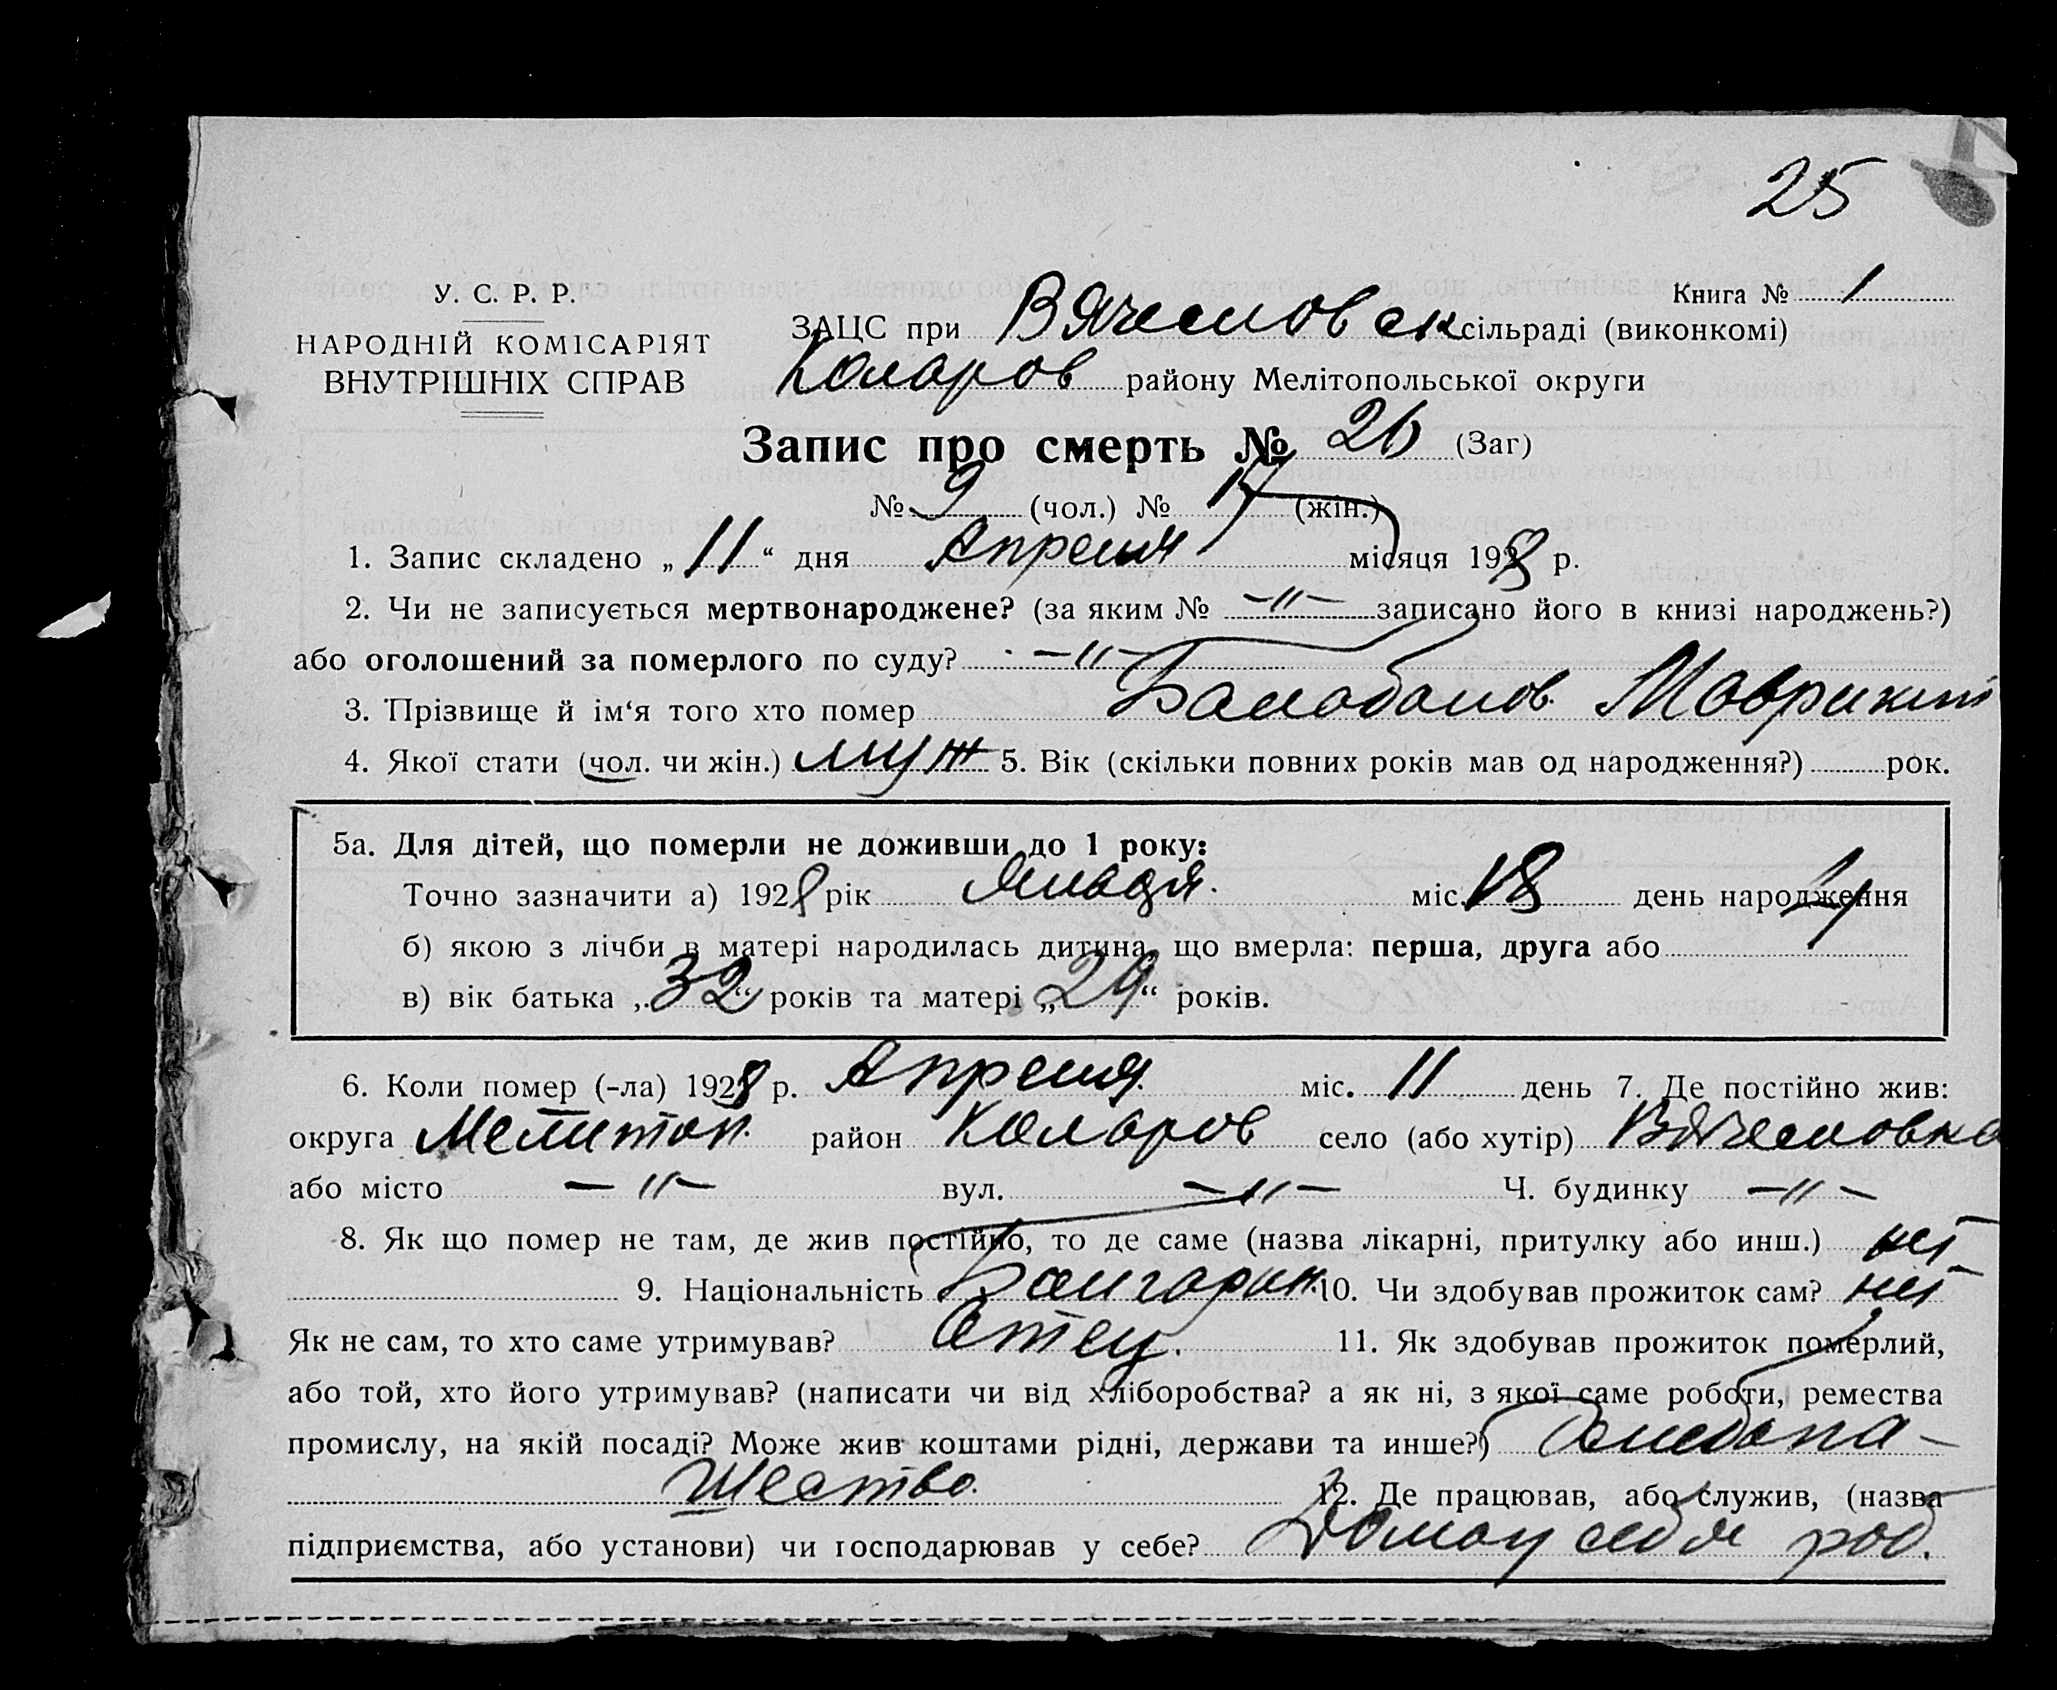 25
У. С. Р. Р.
НАРОДНІЙ КОМІСАРІЯТ
ВНУТРІШНІХ СПРАВ
Книга № 1
ЗАЦС при Вячесловск сільраді (виконкомі)
Коларов району Мелітопольської округи
Запис про смерть № 26 (Заг)
№ 9 (чол.) № 17 (жін.)
1. Запис складено „ 11 “ дня Апреля місяця 1928 р.
2. Чи не записується мертвонароджене? (за яким № –"– записано його в книзі народжень?)
або оголошений за померлого по суду? –"–
3. Прізвище й ім‘я того хто помер Балабанов Маврикий
4. Якої стати (чол. чи жін.) муж 5. Вік (скільки повних років мав од народження?) рок.
5а. Для дітей, що померли не доживши до 1 року:
Точно зазначити а) 1928 рік Января міс. 18 день народження
б) якою з лічби в матері народилась дитина, що вмерла: перша, друга або 4
в) вік батька „ 32 “ років та матері „ 29 “ років.
6. Коли помер (-ла) 1928 р. Апреля міс. 11 день 7. Де постійно жив:
округа Мелитоп. район Коларов село (або хутір) Вячесловка
або місто –"– вул. –"– Ч. будинку –"–
8. Як що помер не там, де жив постійно, то де саме (назва лікарні, притулку або инш.) нет
9. Національність Болгарин. 10. Чи здобував прожиток сам? нет
Як не сам, то хто саме утримував? Отец. 11. Як здобував прожиток померлий,
або той, хто його утримував? (написати чи від хліборобства? а як ні, з якої саме роботи, ремества
промислу, на якій посаді? Може жив коштами рідні, держави та инше?) Хлебопа-
шество. 12. Де працював, або служив, (назва
підприємства, або установи) чи господарював у себе? Дома у себя раб.